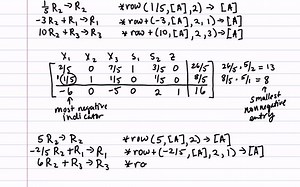 1/5 R₂ → R₂ *row(1/5,[A],2) → [A]
-3R₂ + R₁ → R₁ *row+(-3,[A],2,1) → [A]
10R₂ + R₃ → R₃ *row+(10,[A],2,3) → [A]
X₁ X₂ X₃ S₁ S₂ Z
2/5 0 7/5 1 3/5 0 26/5 26/5 ÷ 2/5 = 13
1/5 1 1/5 0 1/5 0 8/5 8/5 ÷ 1/5 = 8
-6 0 -5 0 2 1 16
most negative indicator
smallest nonnegative entry
5R₂ → R₂ *row(5,[A],2) → [A]
-2/5 R₂ + R₁ → R₁ *row+(-2/5,[A],2,1) → [A]
6R₂ + R₃ → R₃ *ro